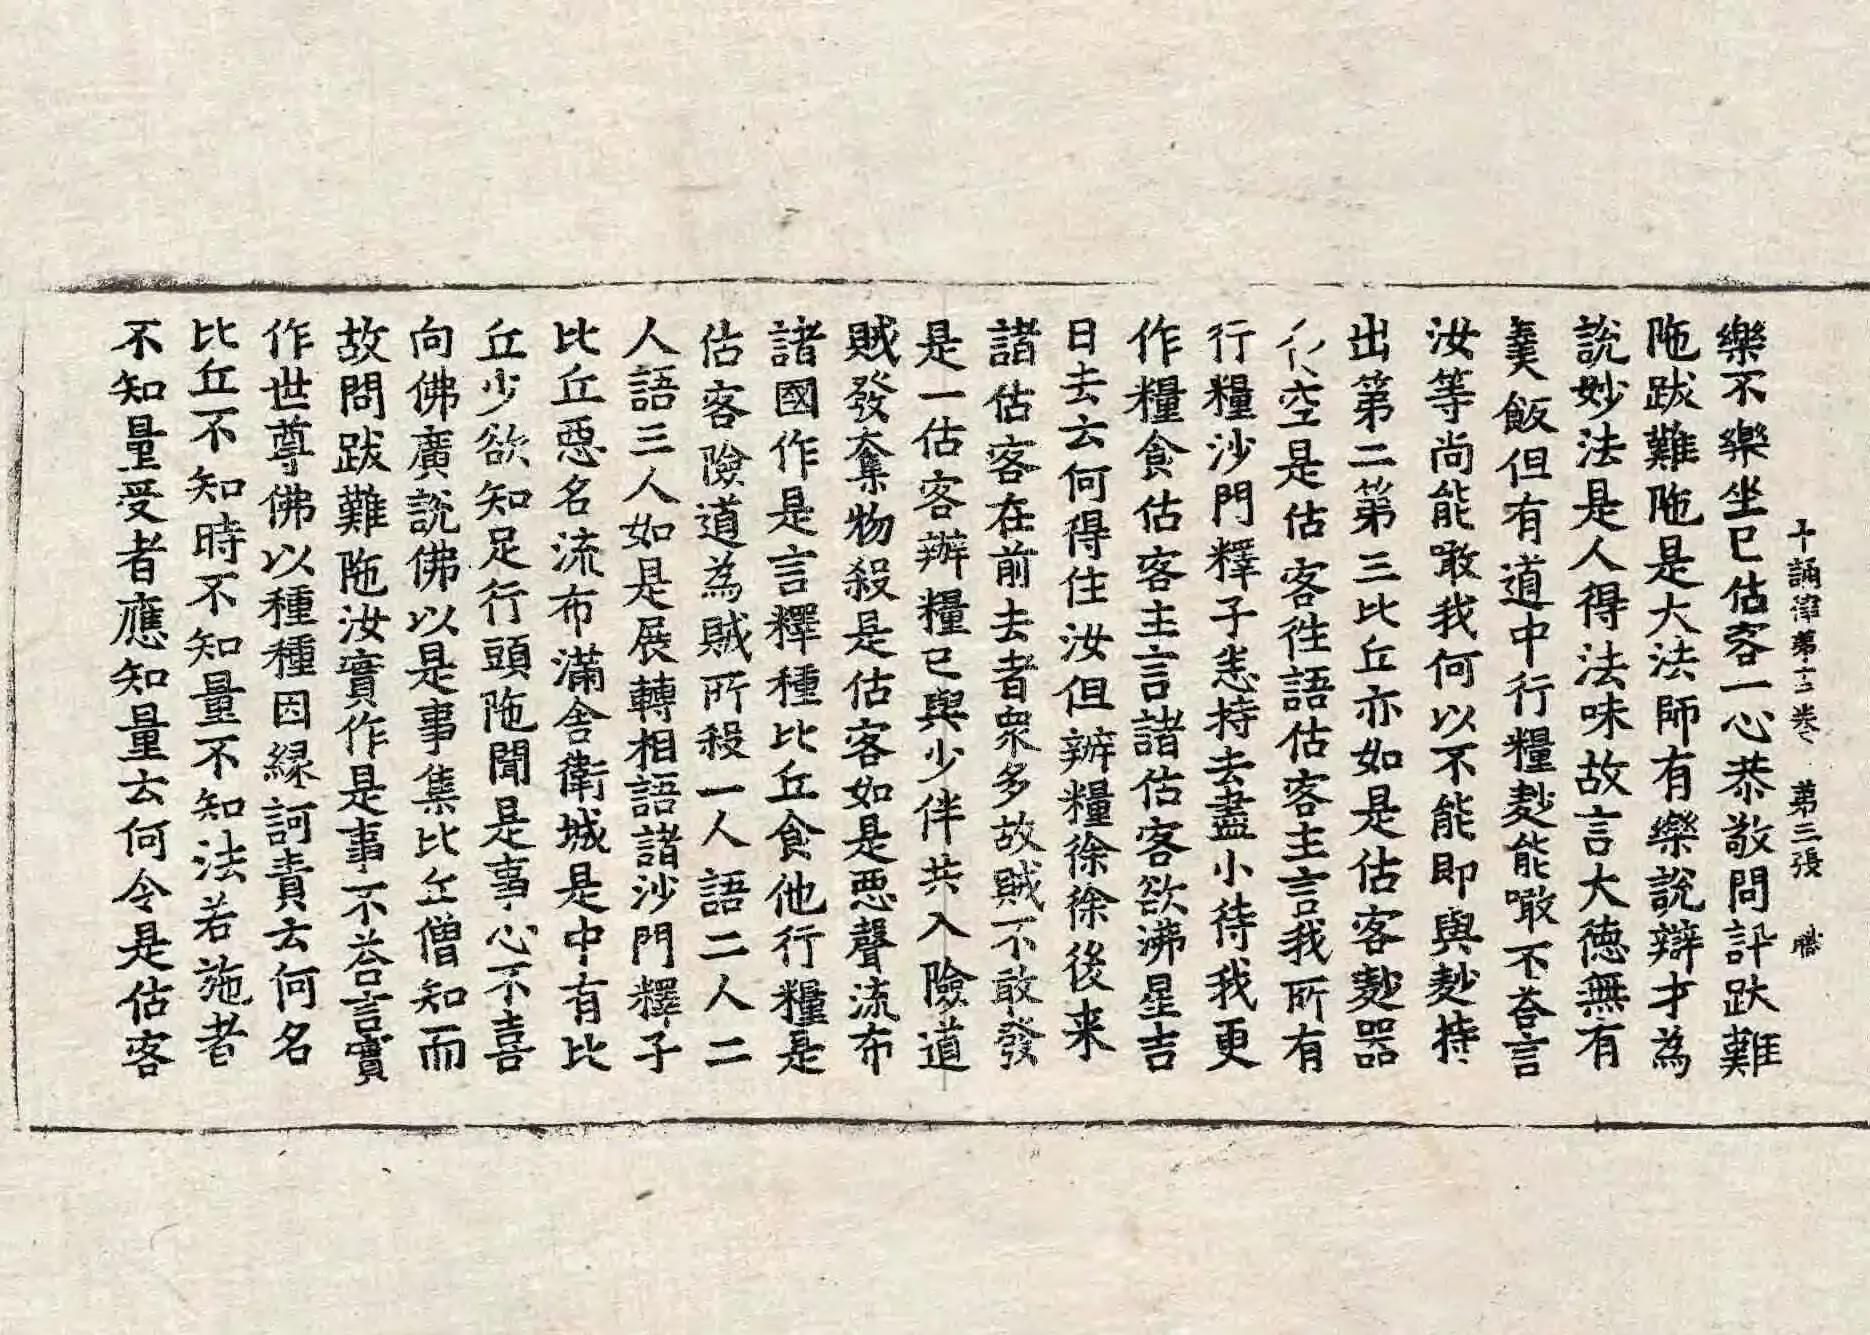 十誦律第十三卷 第三張 職
樂不樂坐已估客一心恭敬問訊跋難
陁跋難陁是大法師有樂說辯才為
說妙法是人得法味故言大德無有
羹飯但有道中行糧麨能噉不荅言
汝等尚能噉我何以不能即與麨持
出第二第三比丘亦如是估客麨器
空是估客徃語估客主言我所有
行糧沙門釋子悉持去盡小待我更
作糧食估客主言諸估客欲沸星吉
日去云何得住汝但辦糧徐徐後来
諸估客在前去者衆多故賊不敢發
是一估客辦糧已與少伴共入險道
賊發奪物殺是估客如是惡聲流布
諸國作是言釋種比丘食他行糧是
估客險道為賊所殺一人語二人二
人語三人如是展轉相語諸沙門釋子
比丘惡名流布滿舍衛城是中有比
丘少欲知足行頭陁聞是事心不喜
向佛廣說佛以是事集比丘僧知而
故問跋難陁汝實作是事不荅言實
作世尊佛以種種因緣訶責云何名
比丘不知時不知量不知法若施者
不知量受者應知量云何令是估客